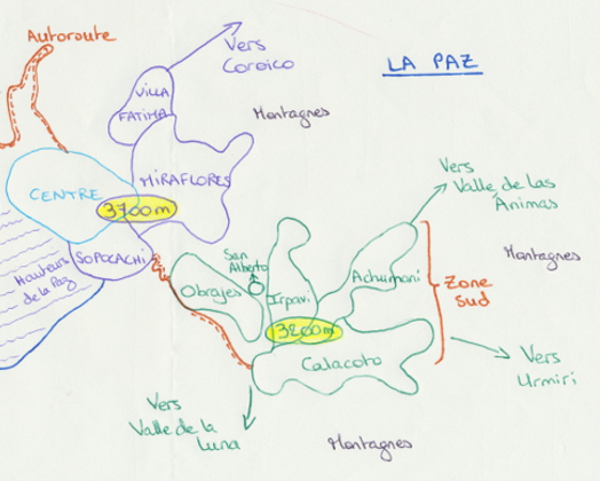 Autoroute
Vers
Coroico
LA PAZ
VILLA
FATIMA
Montagnes
CENTRE
MIRAFLORES
3700m
SOPOCACHI
Hauteurs
de la Paz
Vers
Valle de las
Animas
San
Alberto
Obrajes
Irpavi
Achumani
Zone
Sud
Montagnes
3200m
Calacoto
Vers
Urmiri
Vers
Valle de la
Luna
Montagnes